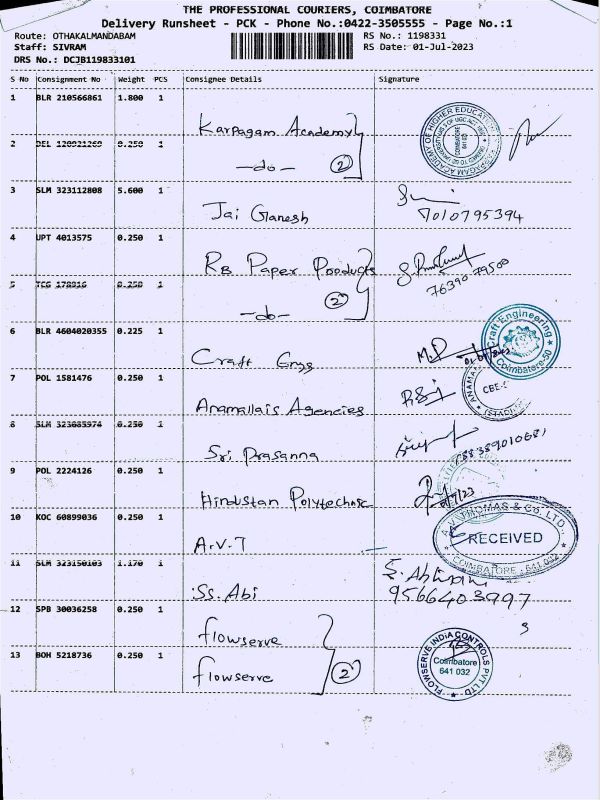 THE PROFESSIONAL COURIERS, COIMBATORE
Delivery Runsheet - PCK - Phone No.:0422-3505555 - Page No.:1
Route: OTHAKALMANDABAM RS No.: 1198331
Staff: SIVRAM RS Date: 01-Jul-2023
DRS No.: DCJB119833101
S No Consignment No Weight PCS Consignee Details Signature
1 BLR 210566861 1.800 1
Karpagam Academy
2 DEL 1.250 1
-do- 2
3 SLM 323112808 5.600 1
Jai Ganesh 7010795394
4 UPT 4013575 0.250 1
RB Paper Products
5 0.250 1
-do- 2
6 BLR 4604020355 0.225 1
Craft Engg M.D
Craft Engineering
Coimbatore
7 POL 1581476 0.250 1
Anamallais Agencies
8 SLM 323685974 0.250 1
Sri Prasanna
9 POL 2224126 0.250 1
Hindustan Polytechnic
10 KOC 60899036 0.250 1
A.V.T
A.V. THOMAS & Co. LTD.
RECEIVED
COIMBATORE - 641 032
11 SLM 323150103 1.170 1
Ss. Abi 9566403997
12 SPB 30036258 0.250 1
flowserve
13 BOH 5218736 0.250 1
flowserve 2
FLOWSERVE INDIA CONTROLS PVT LTD
Coimbatore
641 032